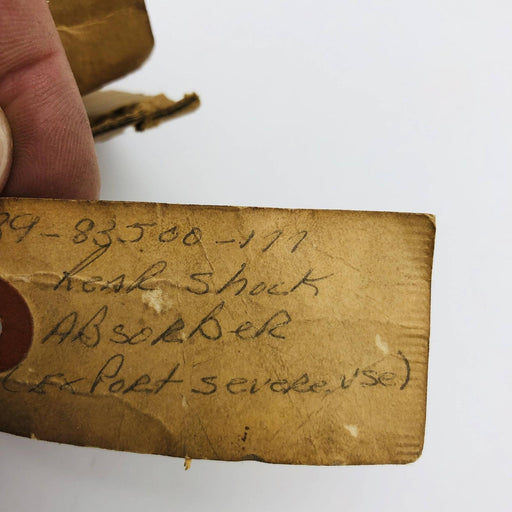 39-83500-177
Rear Shock
Absorber
(Export severe use)